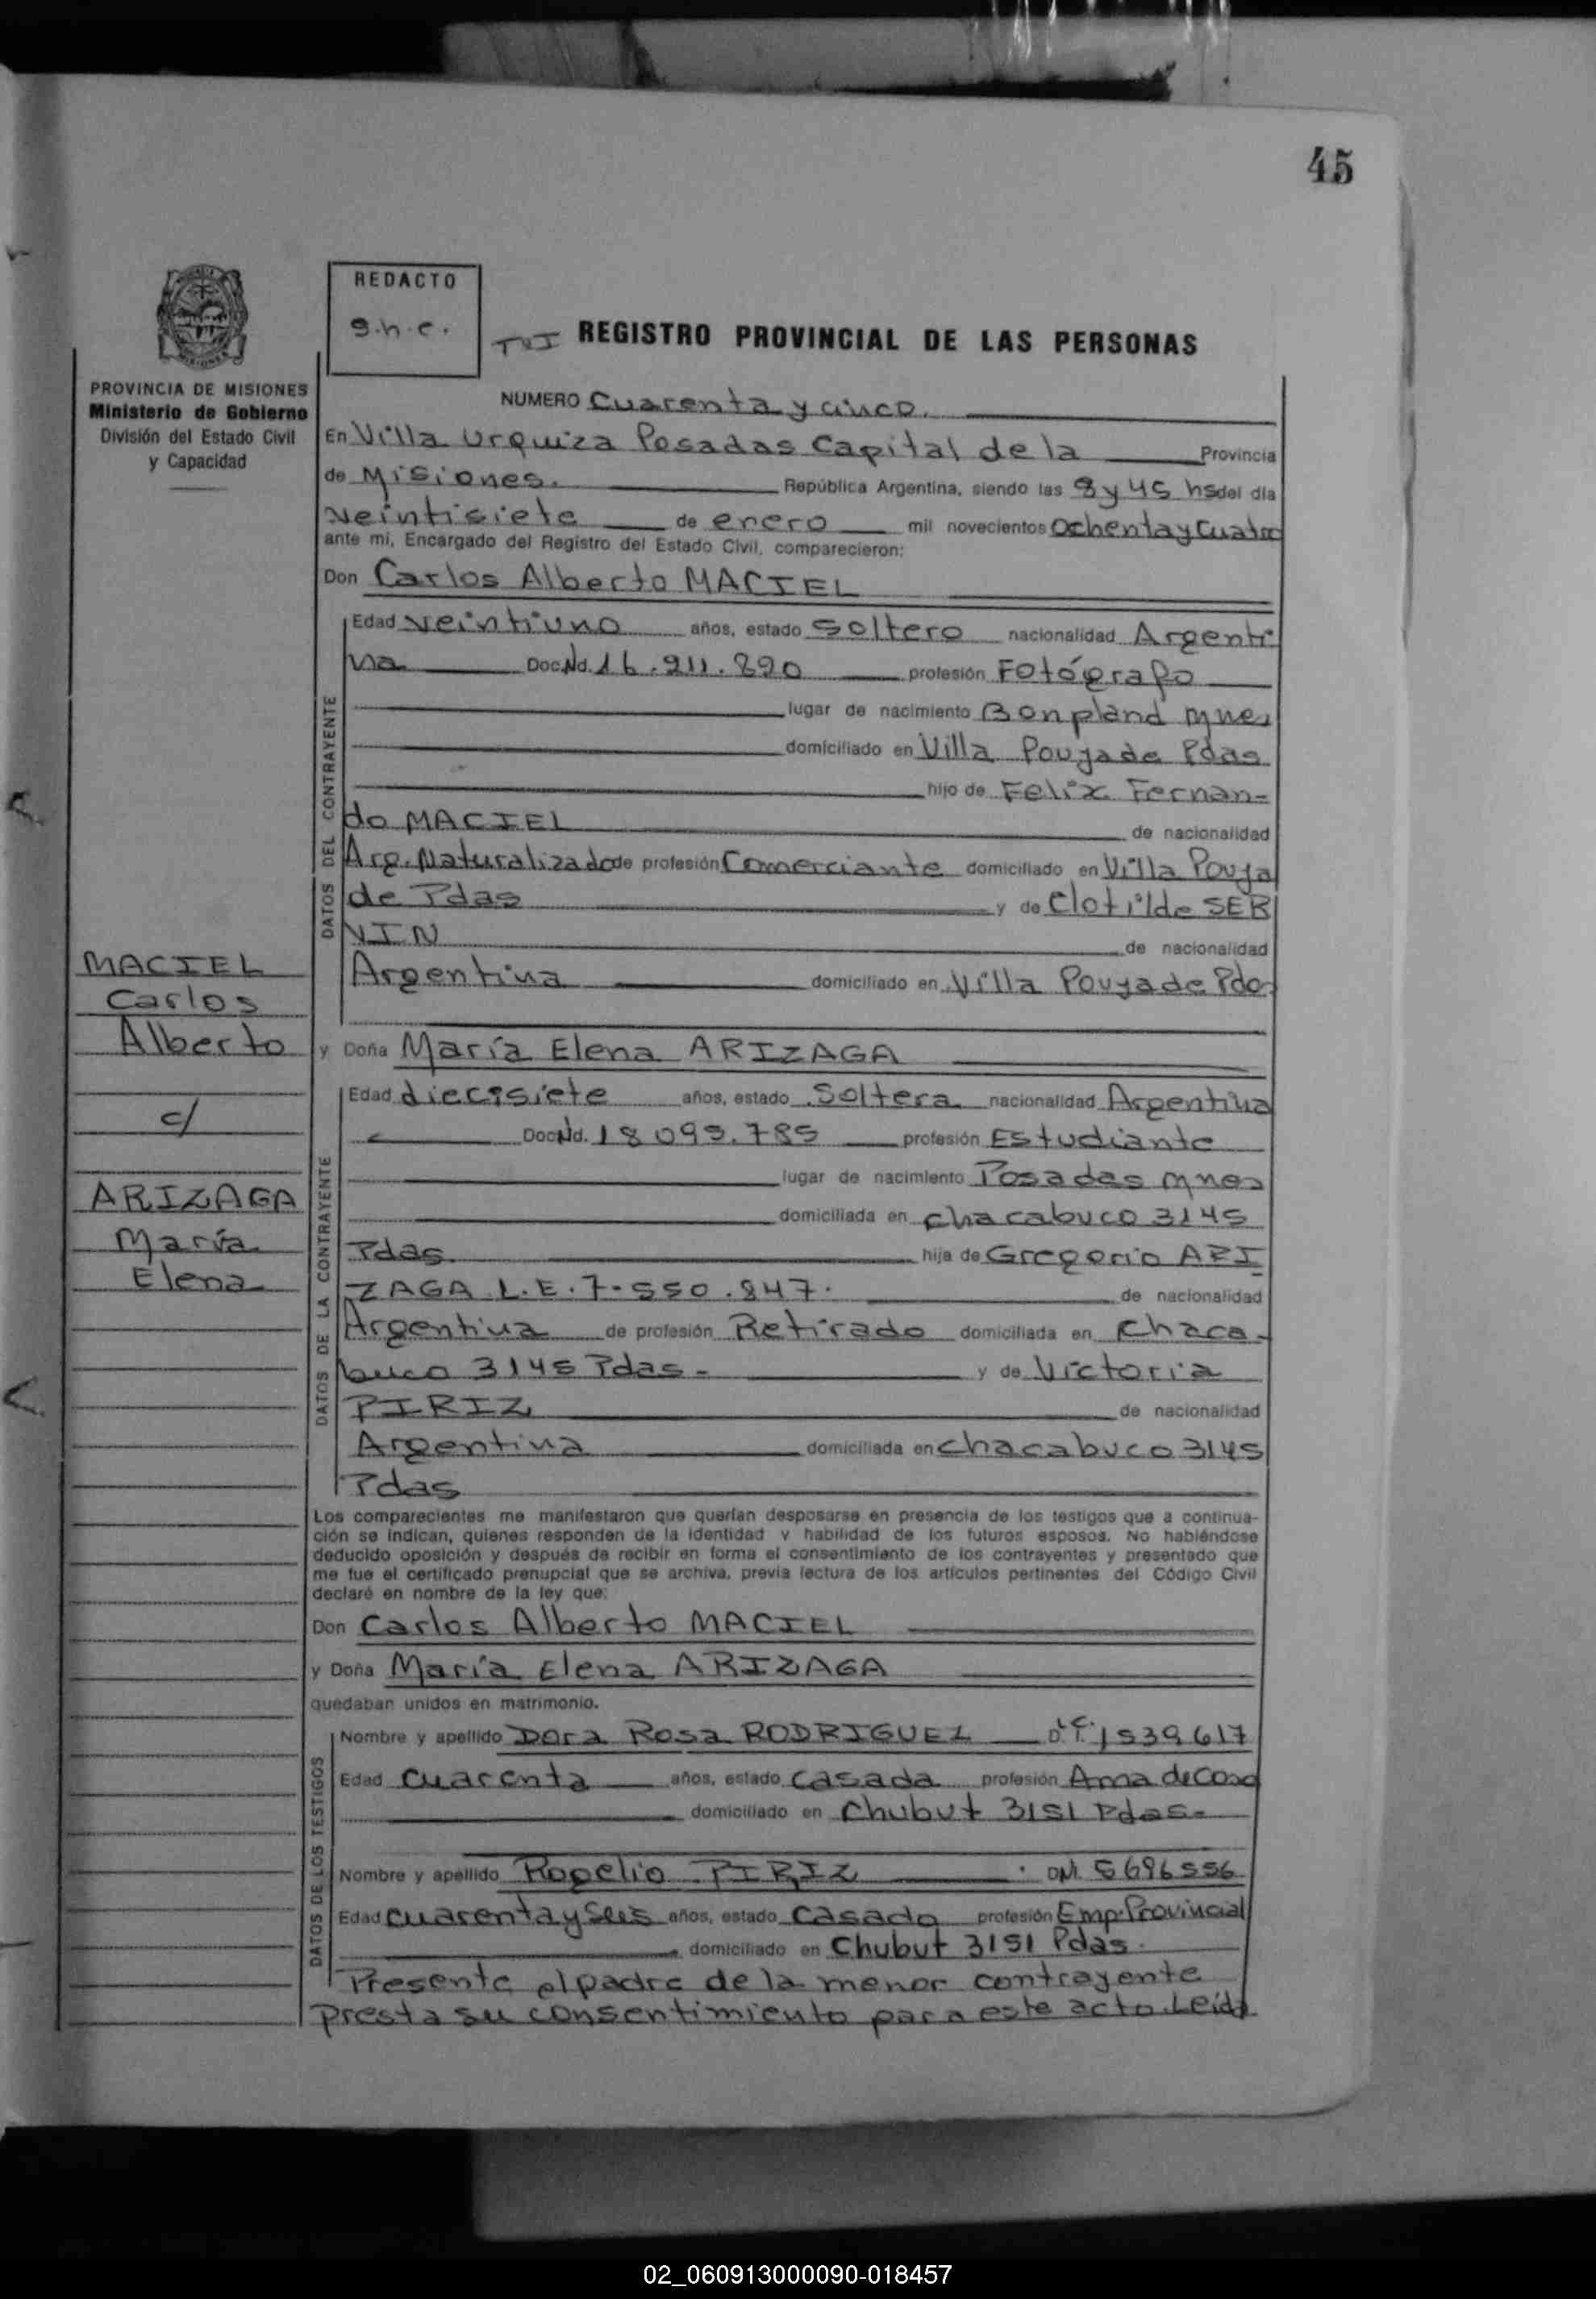 45
REDACTO
g.h.c.
REGISTRO PROVINCIAL DE LAS PERSONAS
PROVINCIA DE MISIONES
Ministerio de Gobierno
División del Estado Civil
y Capacidad
NUMERO Cuarenta y cinco.
En Villa Urquiza Posadas Capital de la Provincia
de Misiones. República Argentina, siendo las 8 y 45 hs del día
veintisiete de enero mil novecientos Ochenta y Cuatro
ante mí, Encargado del Registro del Estado Civil, comparecieron:
Don Carlos Alberto MACIEL
DATOS DEL CONTRAYENTE
Edad veintiuno años, estado Soltero nacionalidad Argenti
na Doc.Nd. 16.911.890 profesión Fotógrafo
lugar de nacimiento Bonpland Mnes
domiciliado en Villa Poujade Pdas
hijo de Felix Fernan-
do MACIEL de nacionalidad
Arg. Naturalizado de profesión Comerciante domiciliado en Villa Pouja
de Pdas y de Clotilde SER
VIN de nacionalidad
Argentina domiciliado en Villa Poujade Pdas
MACIEL
Carlos
Alberto
c/
ARIZAGA
María
Elena
y Doña María Elena ARIZAGA
DATOS DE LA CONTRAYENTE
Edad diecisiete años, estado Soltera nacionalidad Argentina
Doc.Nd. 18 099.785 profesión Estudiante
lugar de nacimiento Posadas Mnes
domiciliada en Chacabuco 3145
Pdas hija de Gregorio ARI
ZAGA L.E. 7.550.847. de nacionalidad
Argentina de profesión Retirado domiciliada en Chaca-
buco 3145 Pdas- y de Victoria
PIRIZ de nacionalidad
Argentina domiciliada en Chacabuco 3145
Pdas
Los comparecientes me manifestaron que querían desposarse en presencia de los testigos que a continua-
ción se indican, quienes responden de la identidad y habilidad de los futuros esposos. No habiéndose
deducido oposición y después de recibir en forma el consentimiento de los contrayentes y presentado que
me fue el certificado prenupcial que se archiva, previa lectura de los artículos pertinentes del Código Civil
declaré en nombre de la ley que:
Don Carlos Alberto MACIEL
y Doña María Elena ARIZAGA
quedaban unidos en matrimonio.
DATOS DE LOS TESTIGOS
Nombre y apellido Dora Rosa RODRIGUEZ 1539617
Edad Cuarenta años, estado Casada profesión Ama de Casa
domiciliado en Chubut 3151 Pdas-
Nombre y apellido Rogelio PIRIZ DNI. 5696556
Edad Cuarenta y Seis años, estado Casado profesión Emp. Provincial
domiciliado en Chubut 3151 Pdas.
Presente el padre de la menor contrayente
presta su consentimiento para este acto. Leída
02_060913000090-018457